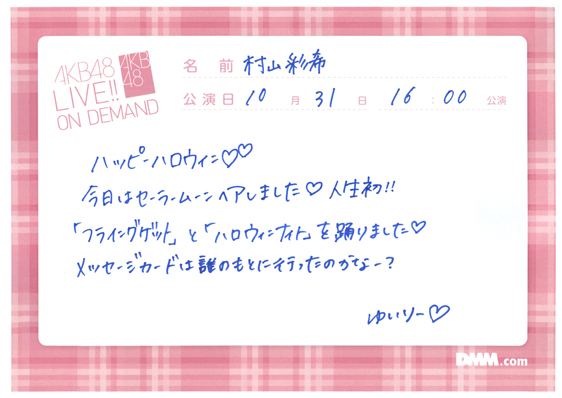 AKB48
LIVE!!
ON DEMAND
AKB
48
名 前 村山彩希
公演日 10 月 31 日 16 : 00 公演
ハッピーハロウィン♡♡
今日はセーラームーンヘアしました♡人生初!!
「フライングゲット」と「ハロウィンナイト」を踊りました♡
メッセージカードは誰のもとに行ったのかなー?
ゆいりー♡
DMM.com